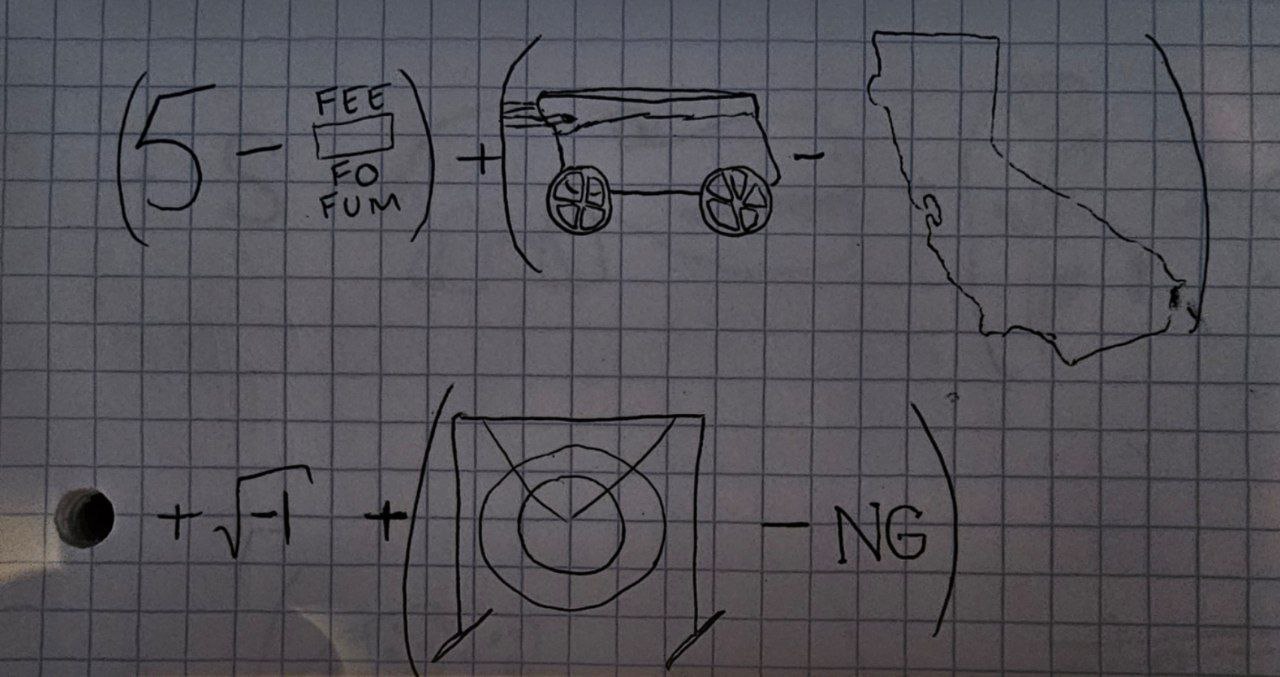 (5 - FEE
FO
FUM) + ( - )
+ √-1 + ( - NG)